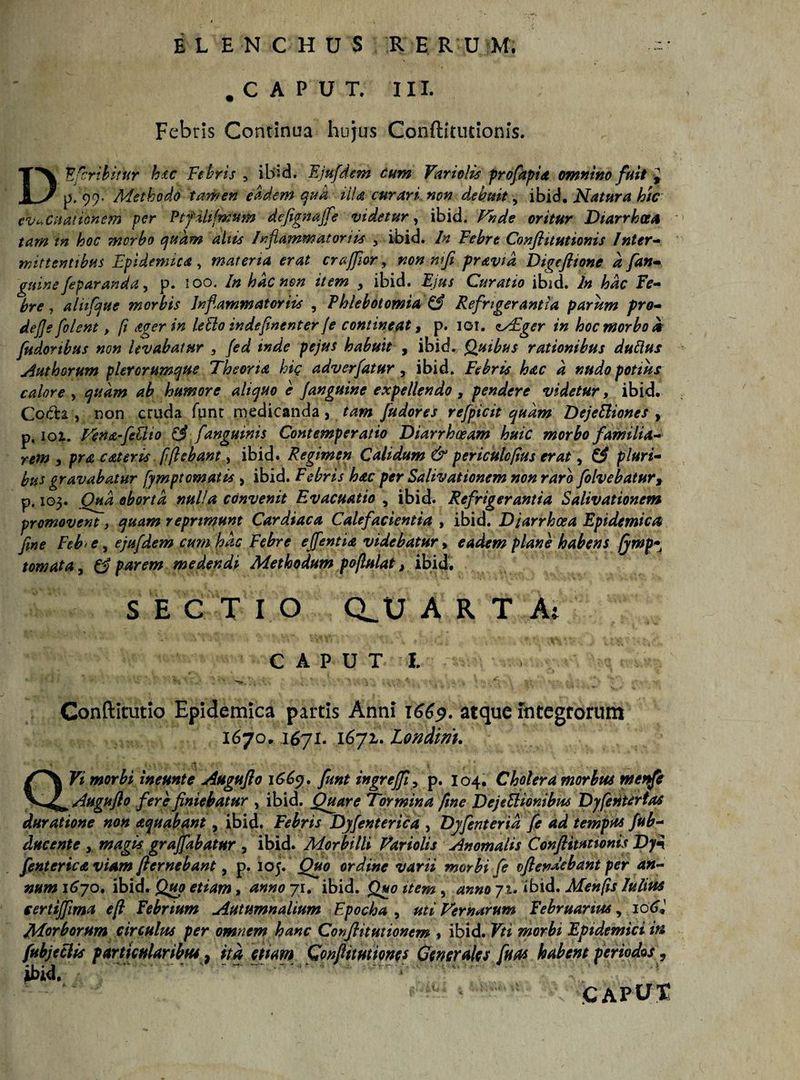 ELENCHUS RERUM.
. CAPUT. III.
Febris Continua hujus Conſtitutionis.
DEſcribitur hæc Febris , ibid. Ejuſdem cum Variolis proſapiæ omnino fuit ,
p. 99. Methodo tamen eâdem quâ illæ curari non debuit , ibid. Natura hic
evacuationem per Ptyaliſmum deſignaſſe videtur , ibid. Vnde oritur Diarrhœa
tam in hoc morbo quàm aliis Inflammatoriis , ibid. In Febre Conſtitutionis Inter-
mittentibus Epidemicæ , materia erat craſſior , non niſi præviâ Digeſtione à ſan-
guine ſeparanda , p. 100. In hâc non item , ibid. Ejus Curatio ibid. In hâc Fe-
bre , aliiſque morbis Inflammatoriis , Phlebotomia & Refrigerantia parùm pro-
deſſe ſolent , ſi æger in lecto indeſinenter ſe contineat , p. 101. Æger in hoc morbo à
ſudoribus non levabatur , ſed inde pejus habuit , ibid. Quibus rationibus ductus
Authorum plerorumque Theoriæ hic adverſatur , ibid. Febris hæc à nudo potiùs
calore , quàm ab humore aliquo è ſanguine expellendo , pendere videtur , ibid.
Cocta , non cruda ſunt medicanda , tam ſudores reſpicit quàm Dejectiones ,
p. 102. Venæ-ſectio & ſanguinis Contemperatio Diarrhœam huic morbo familia-
rem , præ cæteris ſiſtebant , ibid. Regimen Calidum & periculoſius erat , & pluri-
bus gravabatur ſymptomatis , ibid. Febris hæc per Salivationem non rarò ſolvebatur,
p. 103. Quâ obortâ nulla convenit Evacuatio , ibid. Refrigerantia Salivationem
promovent , quam reprimunt Cardiaca Calefacientia , ibid. Diarrhœa Epidemica
ſine Febre , ejuſdem cum hâc Febre eſſentiæ videbatur , eadem planè habens ſymp-
tomata , & parem medendi Methodum poſtulat , ibid.
SECTIO QUARTA;
CAPUT I.
Conſtitutio Epidemica partis Anni 1669. atque integrorum
1670. 1671. 1672. Londini.
QVi morbi ineunte Auguſto 1669. ſunt ingreſſi , p. 104. Cholera morbus menſe
Auguſto ferè finiebatur , ibid. Quare Tormina ſine Dejectionibus Dyſenterias
duratione non æquabant , ibid. Febris Dyſenterica , Dyſenteriâ ſe ad tempus ſub-
ducente , magis graſſabatur , ibid. Morbilli Variolis Anomalis Conſtitutionis Dy-
ſentericæ viam ſternebant , p. 105. Quo ordine varii morbi ſe oſtendebant per an-
num 1670. ibid. Quo etiam , anno 71. ibid. Quo item , anno 72. ibid. Menſis Iulius
certiſſima eſt Febrium Autumnalium Epocha , uti Vernarum Februarius , 106.
Morborum circulus per omnem hanc Conſtitutionem , ibid. Vti morbi Epidemici in
ſubjectis particularibus , ità etiam Conſtitutiones Generales ſuas habent periodos ,
ibid.
CAPUT